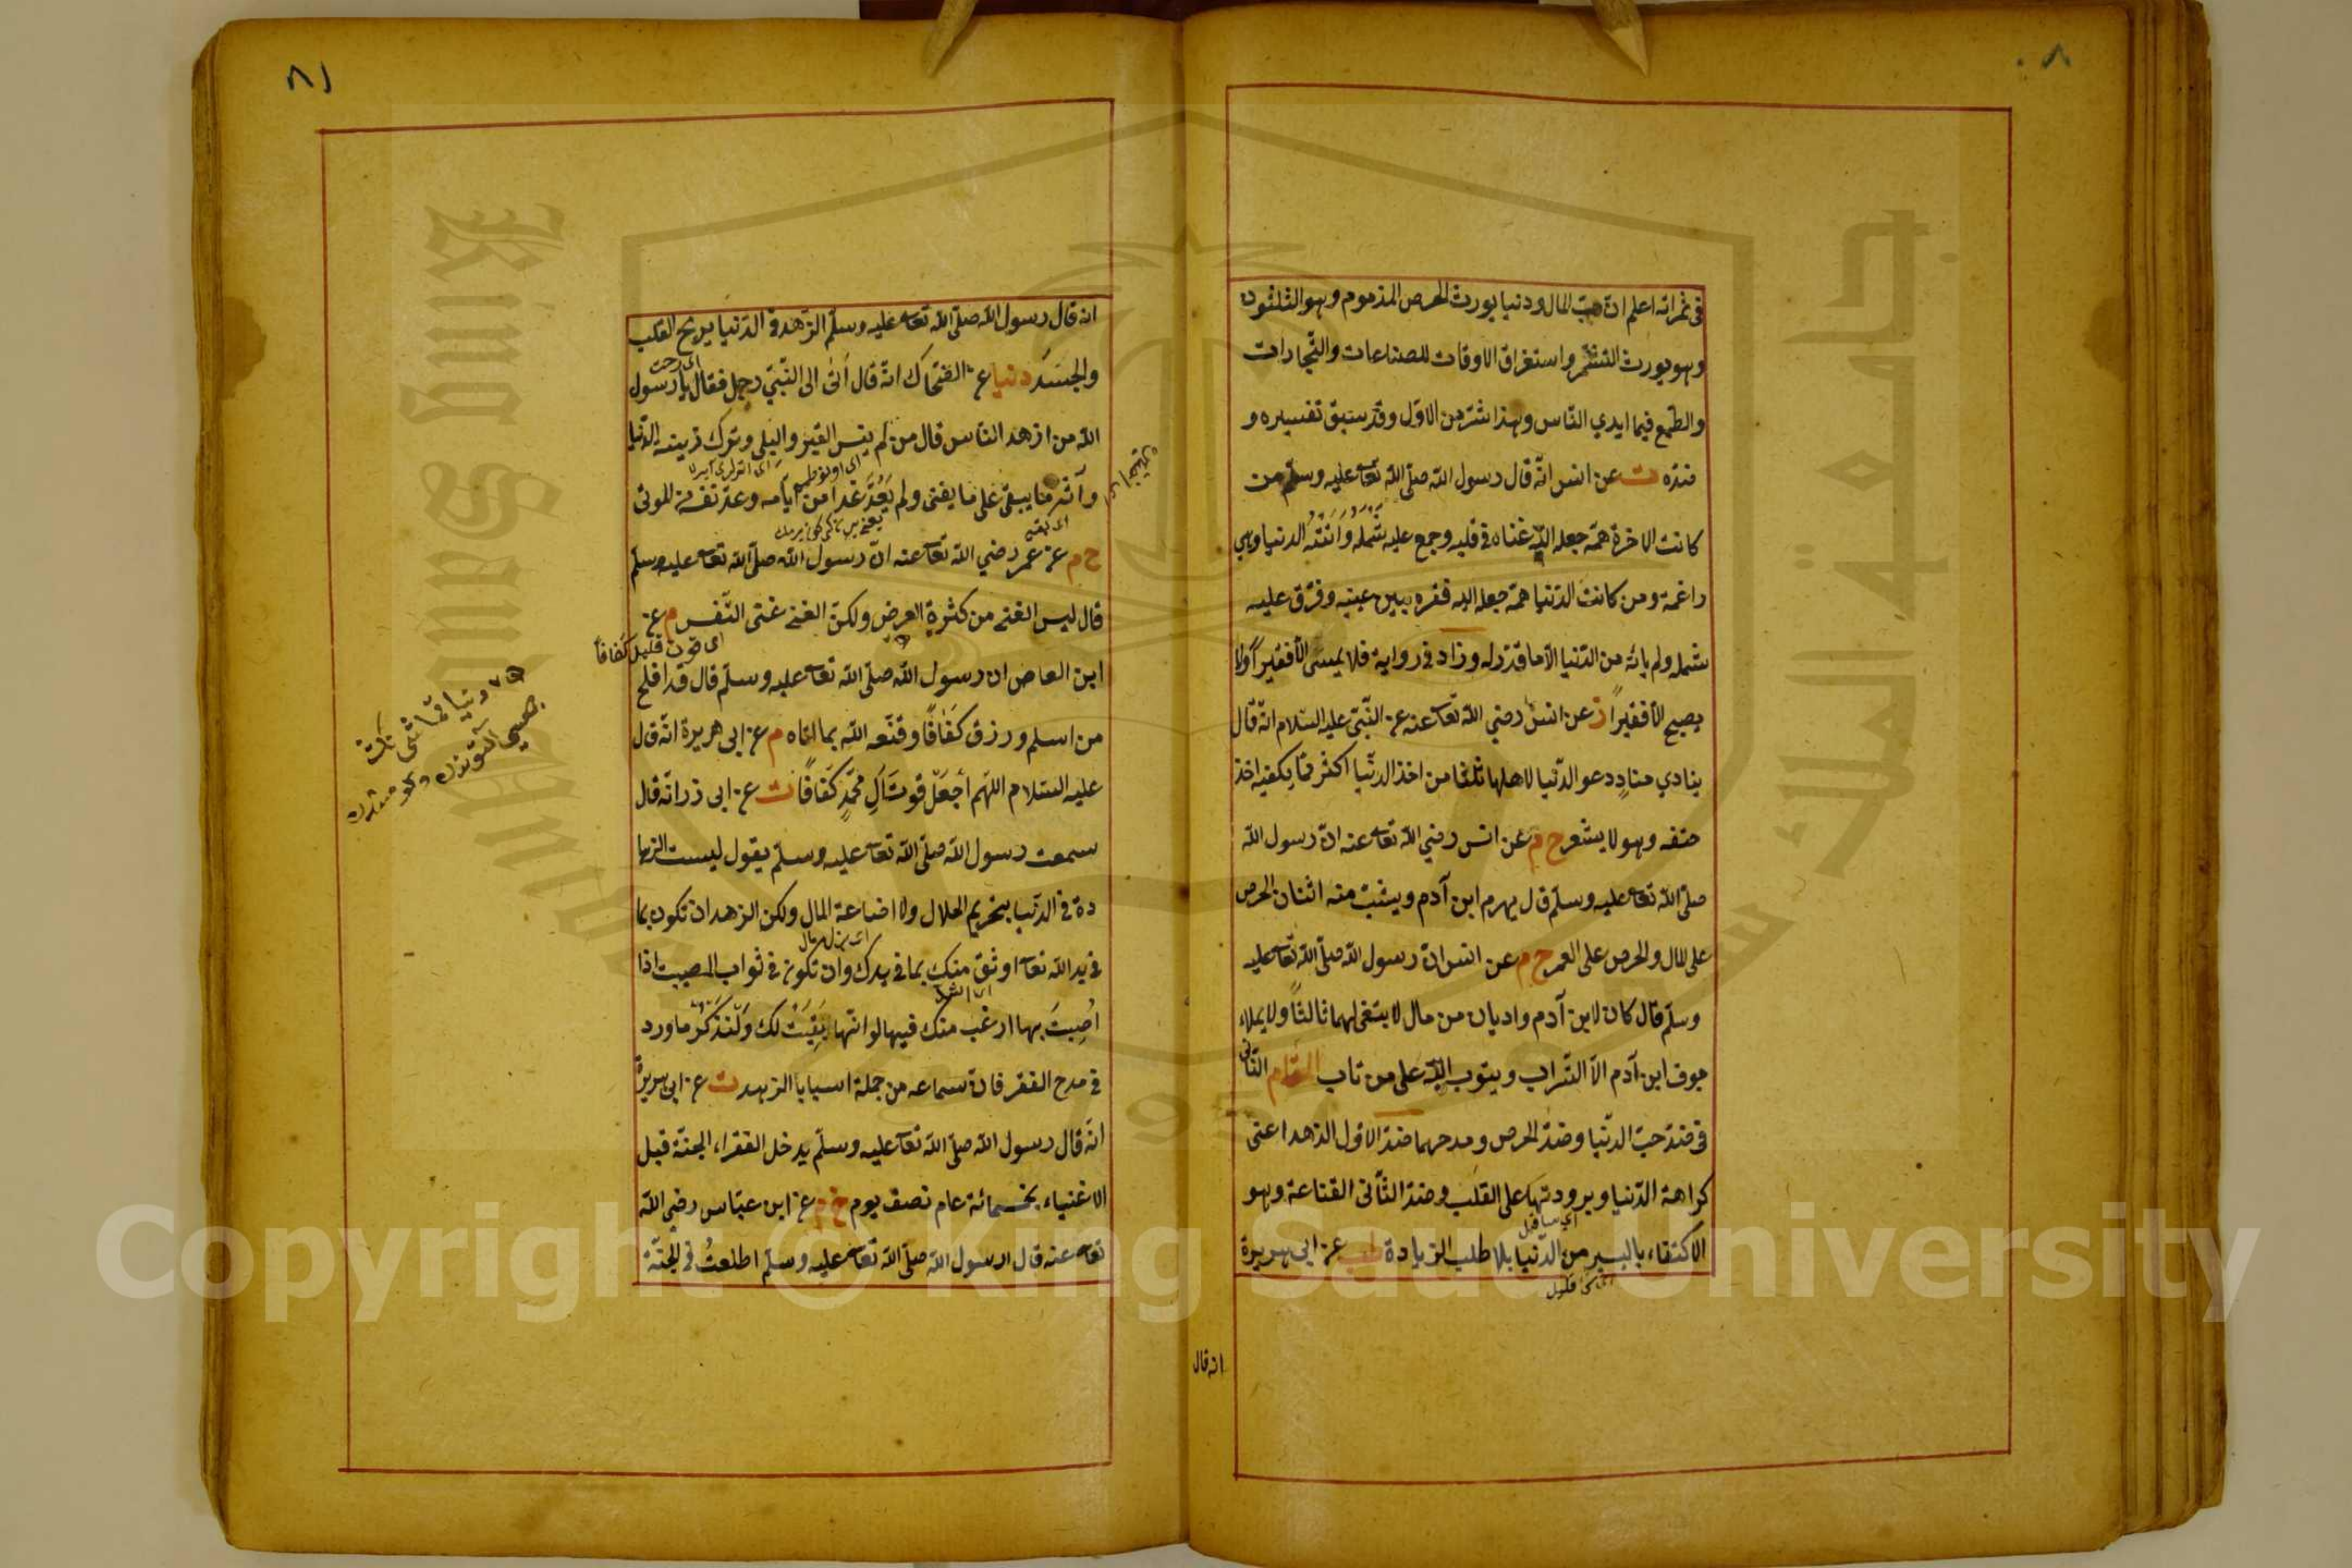 ٨٠
فى ثمراته اعلم ان حبّ المال ودنيا يورث الحرص المذموم وهو الثلثون
وهو يورث التشمّر واستغراق الاوقات للصناعات والتّجارات
والطّمع فيما ايدي النّاس وهذا اشدّ من الاوّل وقد سبق تفسيره و
ضدّه ت عن انس انّه قال رسول الله صلّى الله تعا عليه وسلّم من
كانت الاخرة همّه جعل الله غناه فى قلبه وجمع عليه شَمْلَه وَاَتَتْهُ الدنيا وهي
راغمة ومن كانت الدّنيا همّه جعل الله فقره بين عينيه وفرّق عليه
شمله ولم يأته من الدّنيا الاّ ما قدّر له وزاد فى رواية فلا يمسى الاّ فقيراً ولا
يصبح الاّ فقيراً ز عن انس رضي الله تعا عنه عن النّبيّ عليه السّلام انّه قال
ينادي منادٍ دعو الدّنيا لاهلها ثلثا من اخذ الدنّيا اكثر ممّا يكفيه اخذ
حتفه وهو لا يشعر خ م عن انس رضي الله تعا عنه انّ رسول الله
صلّى الله تعا عليه وسلّم قال يهرم ابن آدم ويشبّ منه اثنان الحرص
على المال والحرص على العمر خ م عن انس انّ رسول الله صلّى الله تعا عليه
وسلّم قال كان لابن آدم واديان من مال لابتغى لهما ثالثاً ولا يملاء
جوف ابن آدم الاّ التّراب ويتوب الله على من تاب المقام الثّانى
فى ضدّ حبّ الدنّيا وضدّ الحرص ومدحهما ضدّ الاوّل الزهد اعنى
كراهة الدّنيا وبرودتها على القلب وضدّ الثّانى القناعة وهو
الاكتفاء باليسير من الدّنيا بلا طلب الزيادة طب عن ابى هريرة
انه قال
٨١
انه قال رسول الله صلّى الله تعا عليه وسلّم الزّهد فى الدّنيا يريح القلب
والجسَد دنيا ع الضّحّاك انّه قال اَتى الى النّبيّ رجل فقال يا رسول
الله من ازهد النّاس قال من لم ينس القبر والبلى وترك زينة الدّنيا
وآثر ما يبقى على ما يفنى ولم يَعُدّ غدا من ايّامه وعدّ نفسه من الموتى
خ م عن عمر رضي الله تعا عنه انّ رسول الله صلّى الله تعا عليه وسلّم
قال ليس الغنى من كثرة العرض ولكنّ الغنى غنى النّفس م عن
ابن العاص ان رسول الله صلّى الله تعا عليه وسلّم قال قد افلح
من اسلم ورزق كَفَافًا وقنّعه الله بما اتاه م عن ابى هريرة انّه قال
عليه السّلام اللّهم اجعَل قوت اَلِ محمّدٍ كَفافًا ت عن ابى ذر انّه قال
سمعت رسول الله صلّى الله تعا عليه وسلّم يقول ليست الزها
دة فى الدّنيا بتحريم الحلال ولا اضاعة المال ولكن الزهد ان تكون بما
فى يد الله تعا اوثق منك بما فى يدك وان تكون فى ثواب المصيبة اذا
اُصِبتَ بها ارغب منك فيها لو انّها بَقِيَتْ لك وَلْنَذكُر ما ورد
فى مدح الفقر فانّ سماعه من جملة اسبابا الزهد ت عن ابى هريرة
انّه قال رسول الله صلّى الله تعا عليه وسلّم يدخل الفقراء الجنّة قبل
الاغنياء بخمسمائة عام نصف يوم خ م عن ابن عبّاس رضي الله
تعا عنه قال رسول الله صلّى الله تعا عليه وسلّم اطلعتُ فى الجنّة
Copyright © King Saud University